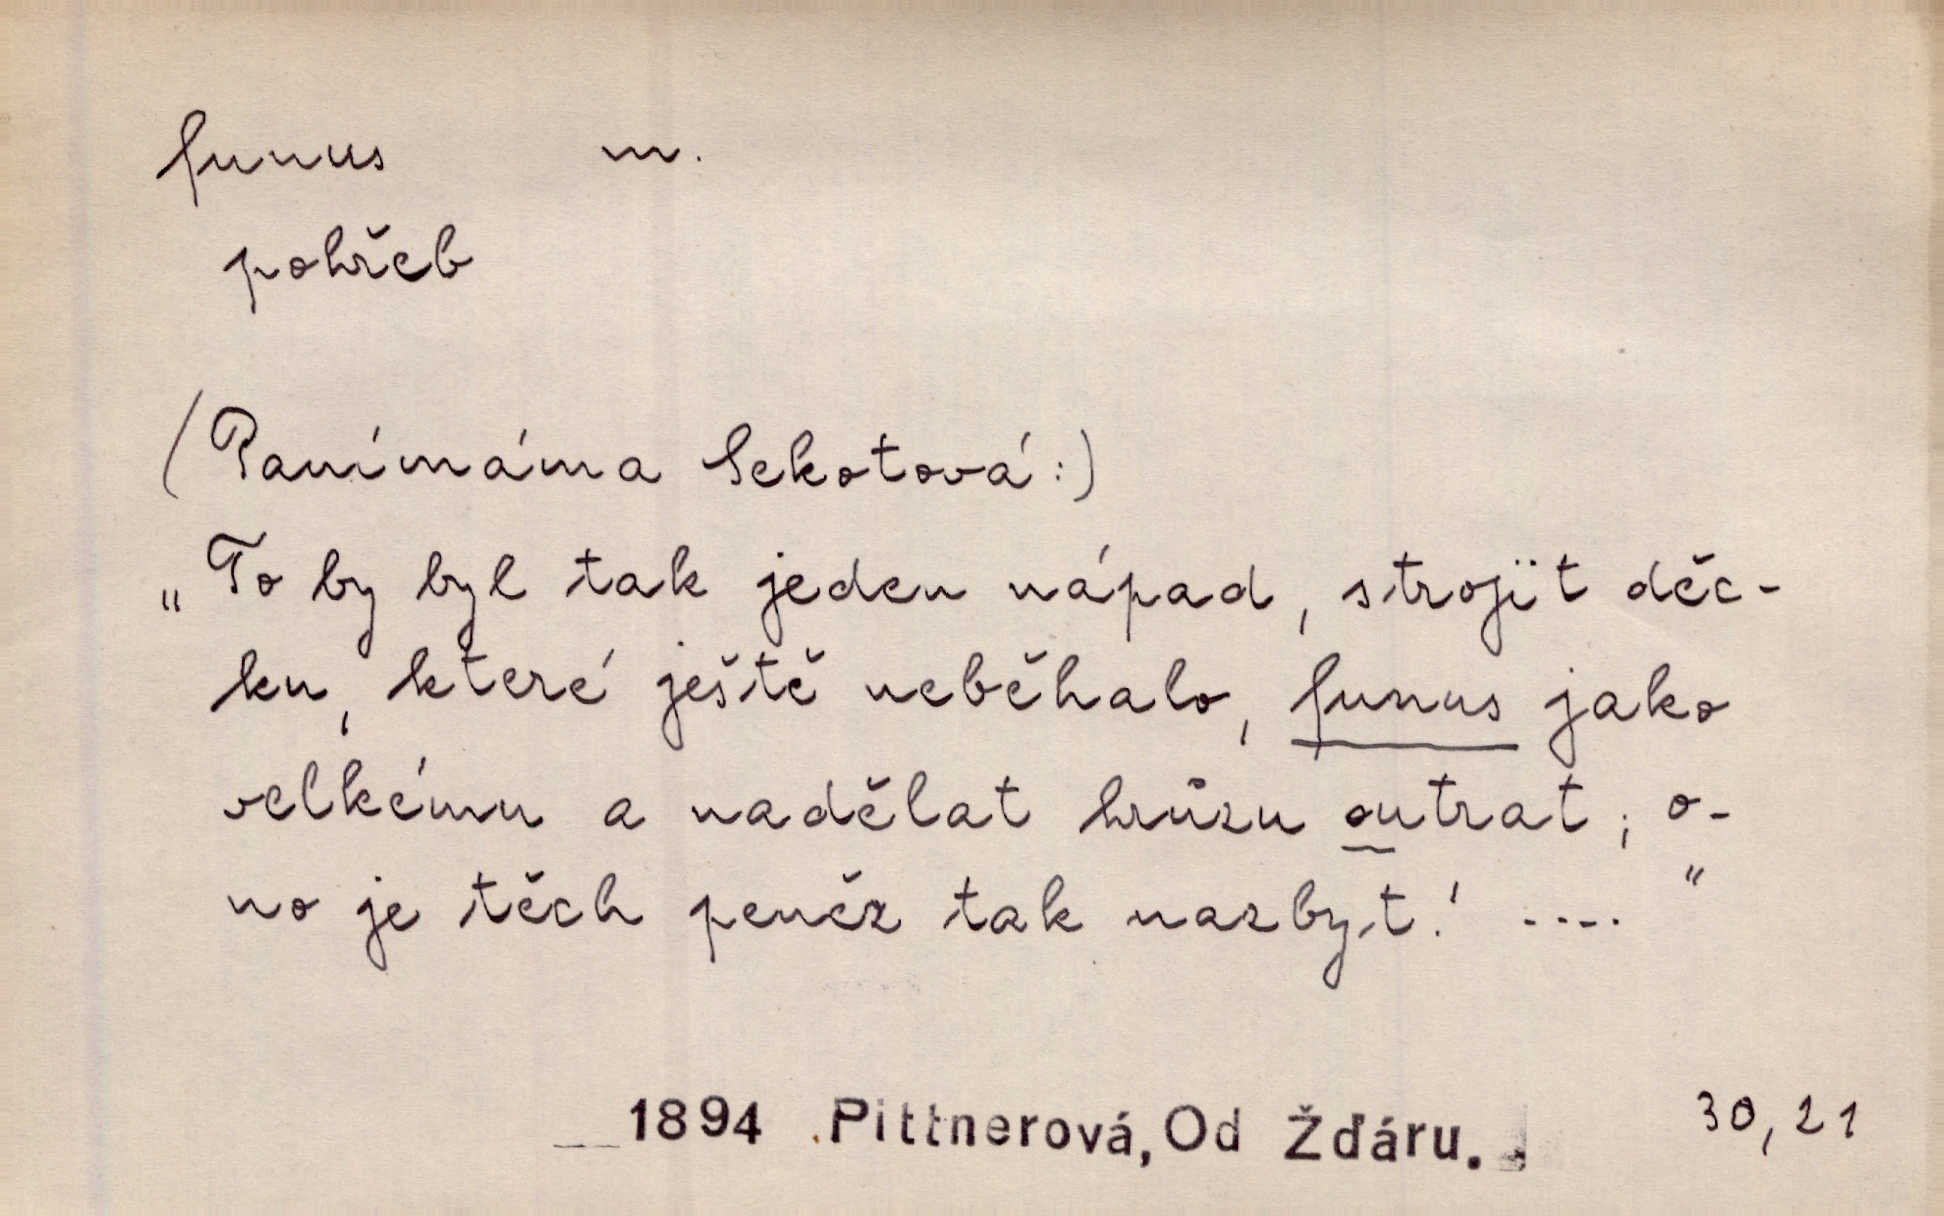 funus m.
pohřeb
(Panímáma Sekotová:)
„To by byl tak jeden nápad, strojit děc-
ku, které ještě neběhalo, funus jako
velkému a nadělat hrůzu outrat; o-
no je těch peněz tak nazbyt! ...."
1894 Pittnerová, Od Žďáru. 30,21